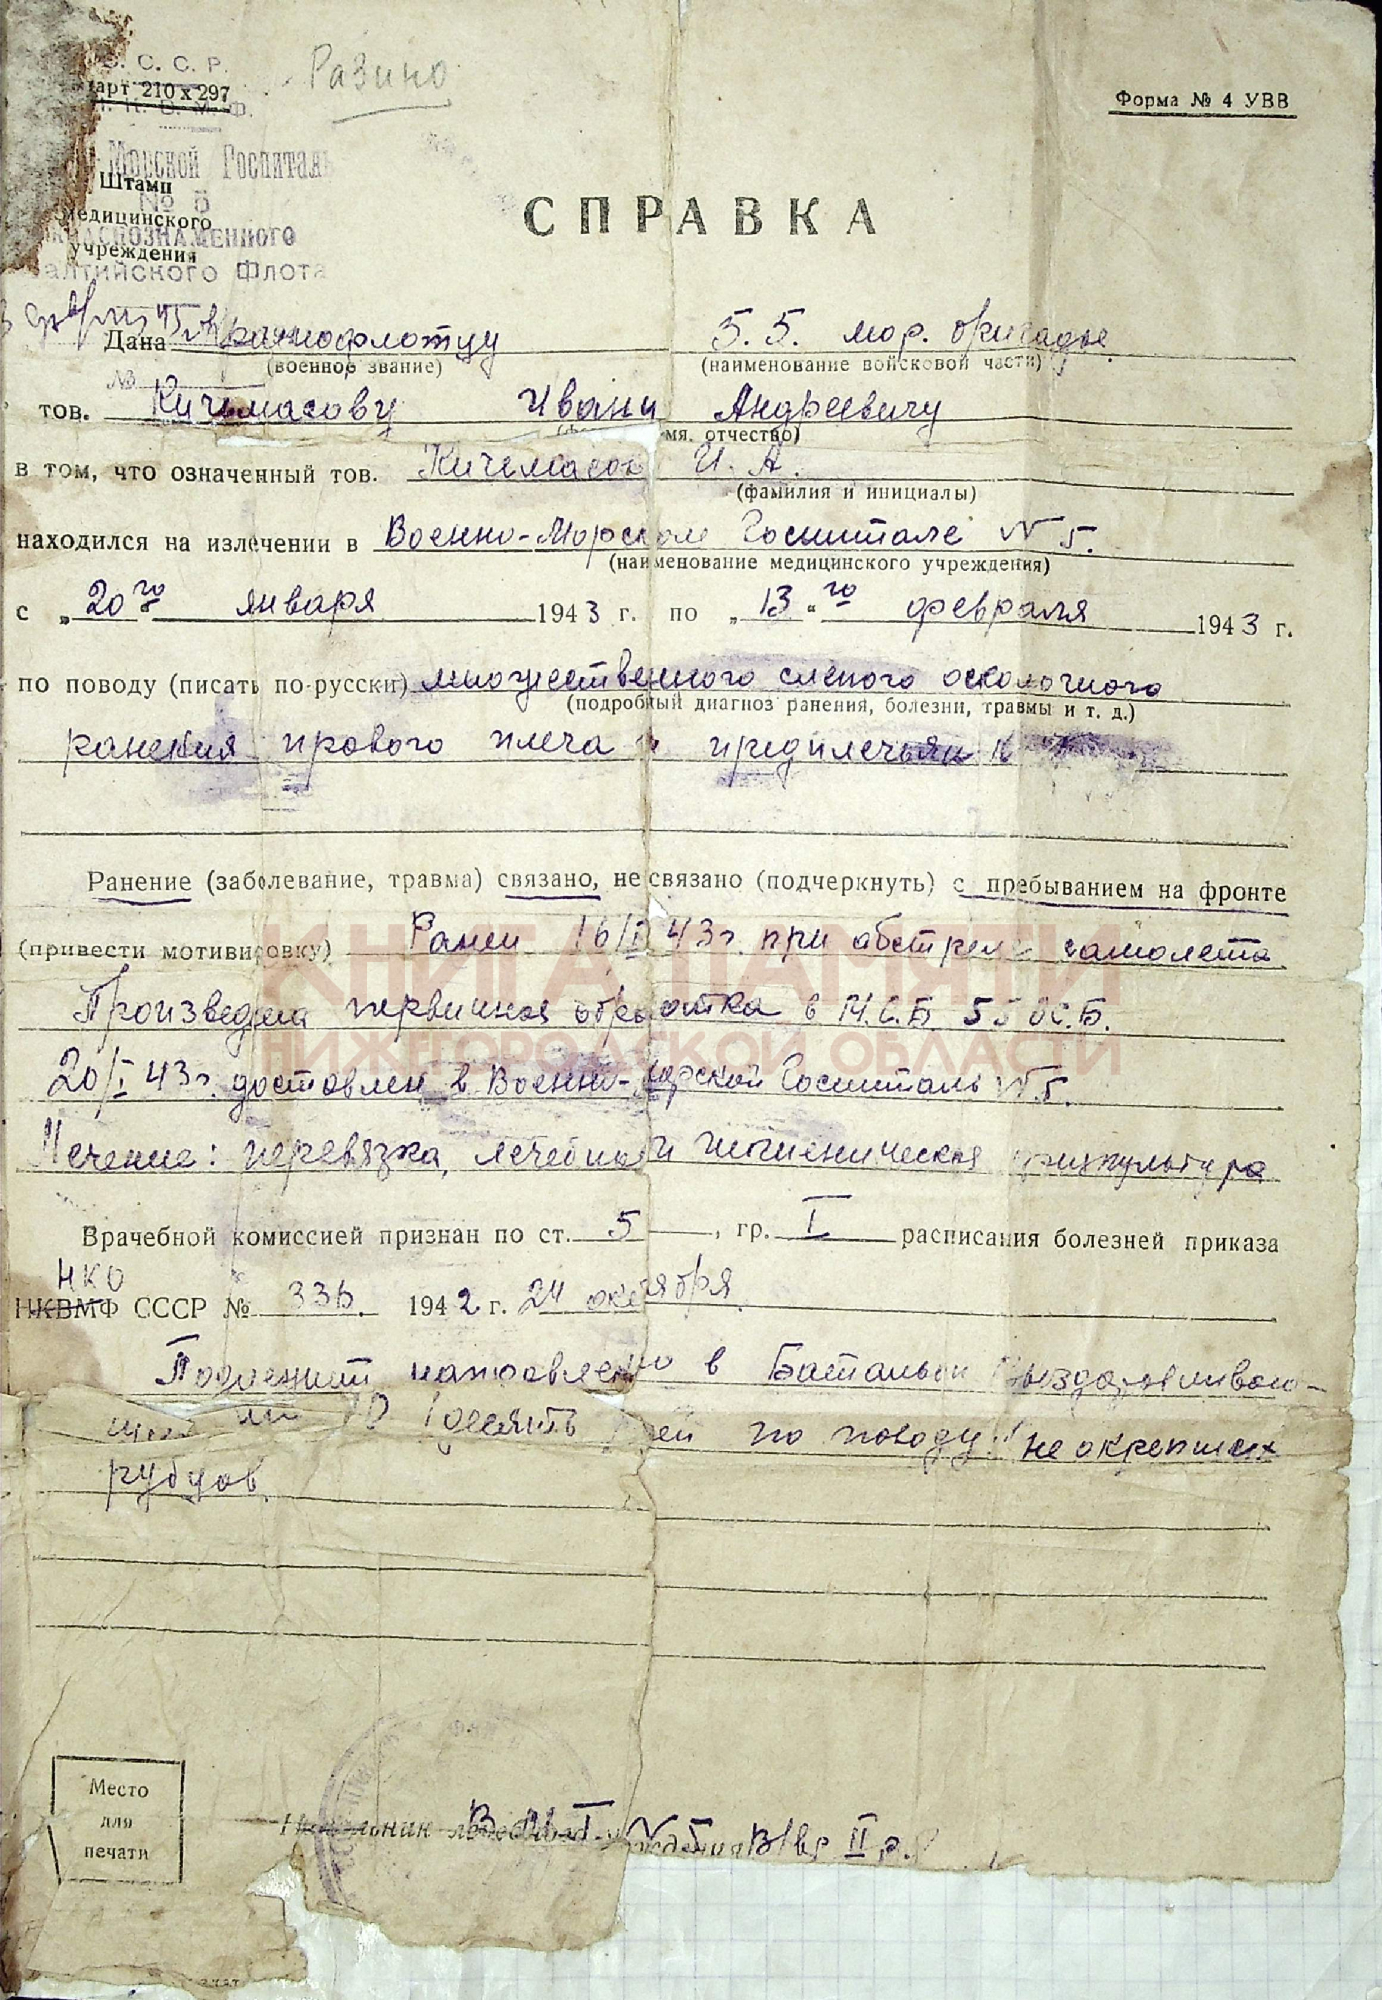 С. С. С. Р.
Разино
арт 210 х 297
Форма № 4 УВВ
Морской Госпиталь
Штамп
№ 5
медицинского
СПРАВКА
КРАСНОЗНАМЕННОГО
учреждения
Балтийского Флота
Дана краснофлотцу 5.5. мор. бригады
(военное звание) (наименование войсковой части)
№
тов. Кичемасову Ивану Андреевичу
мя, отчество)
в том, что означенный тов. Кичемасов И. А.
(фамилия и инициалы)
находился на излечении в Военно-Морском Госпитале № 5.
(наименование медицинского учреждения)
с „20го января 1943 г. по „13"го февраля 1943 г.
по поводу (писать по-русски) множественного слепого осколочного
(подробный диагноз ранения, болезни, травмы и т. д.)
ранения правого плеча и предплечья
Ранение (заболевание, травма) связано, не связано (подчеркнуть) с пребыванием на фронте
(привести мотивировку) Ранен 16/I 43г. при обстреле самолета
КНИГА ПАМЯТИ
Произведена первичная обработка в М.С.Б. 55 ОС.Б.
НИЖЕГОРОДСКОЙ ОБЛАСТИ
20/I 43г. доставлен в Военно-Морской Госпиталь № 5.
Лечение: перевязка, лечебная и гигиеническая физкультура
Врачебной комиссией признан по ст. 5, гр. I расписания болезней приказа
НКО
НКВМФ СССР № 336. 1942 г. 24 октября.
Подлежит направлению в Батальон Выздоравливаю-
щих на 10 (десять дней по поводу неокрепших
рубцов.
Место
для
печати
Начальник
ждения
II р.